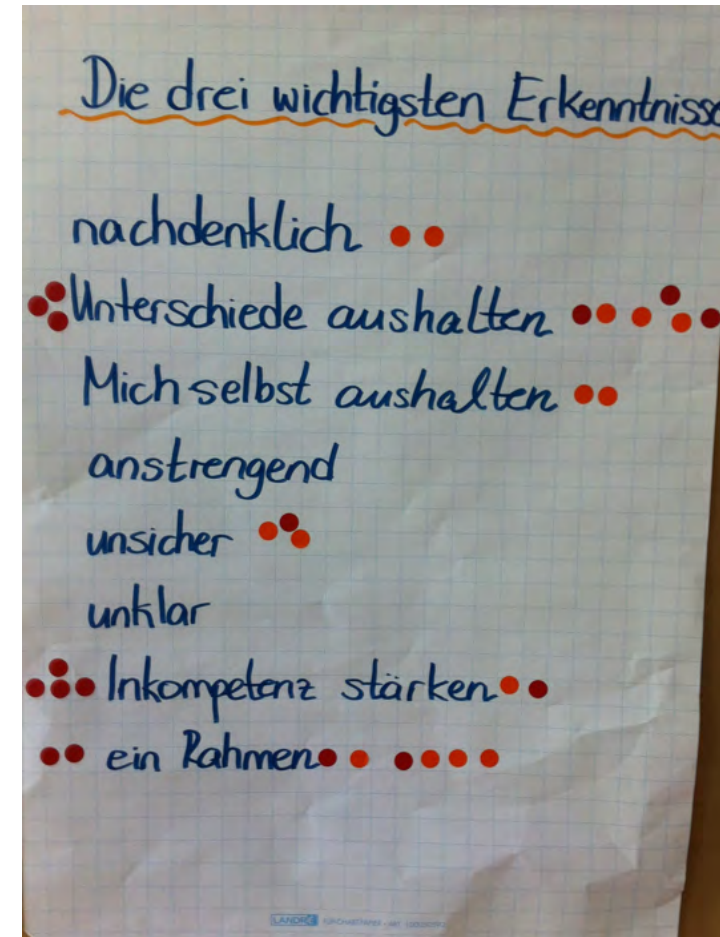 Die drei wichtigsten Erkenntnisse
nachdenklich
Unterschiede aushalten
Mich selbst aushalten
anstrengend
unsicher
unklar
Inkompetenz stärken
ein Rahmen
LANDRÉ